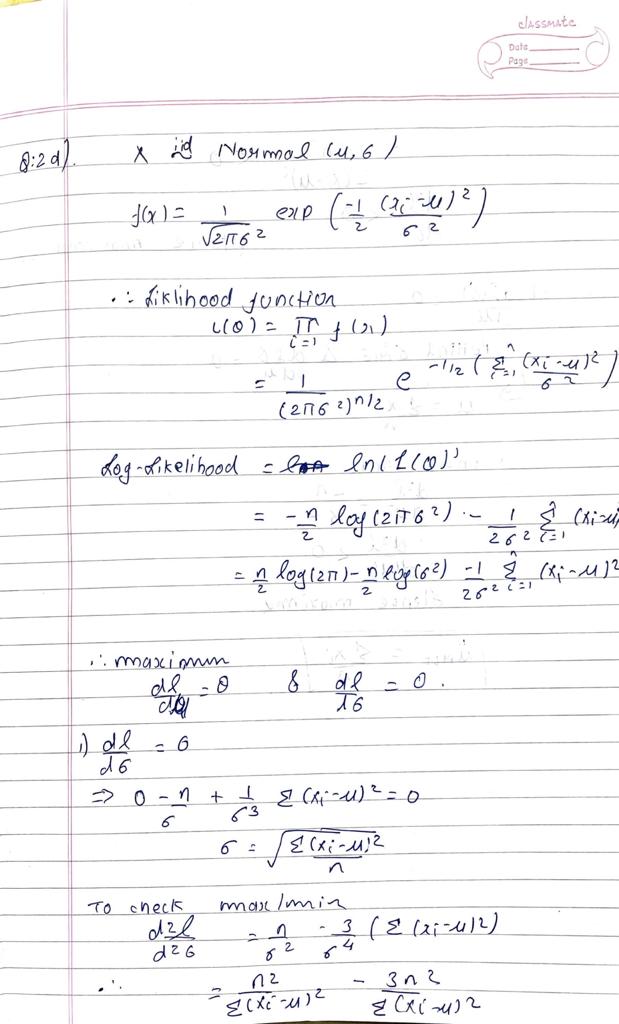 classmate
Date
Page
Q:2 d). X iid Normal (u, σ)
f(x) = 1/√2πσ² exp (-1/2 (xi-u)²/σ²)
∴ Liklihood function
L(θ) = π i=1 f(xi)
= 1/(2πσ²)n/2 e -1/2 (Σ n i=1 (xi-u)²/σ²)
Log-Likelihood = ln(L(θ))
= -n/2 log(2πσ²) - 1/2σ² Σ n i=1 (xi-u)
= n/2 log(2π) - n/2 log(σ²) -1/2σ² Σ n i=1 (xi-u)²
∴ maximum
dl/dθ = 0 & dl/dσ = 0.
i) dl/dσ = 0
⇒ 0 - n/σ + 1/σ³ Σ(xi-u)² = 0
σ = √Σ(xi-u)²/n
To check max/min
d²l/d²σ = n/σ² - 3/σ⁴ (Σ(xi-u)²)
∴ = n²/Σ(xi-u)² - 3n²/Σ(xi-u)²